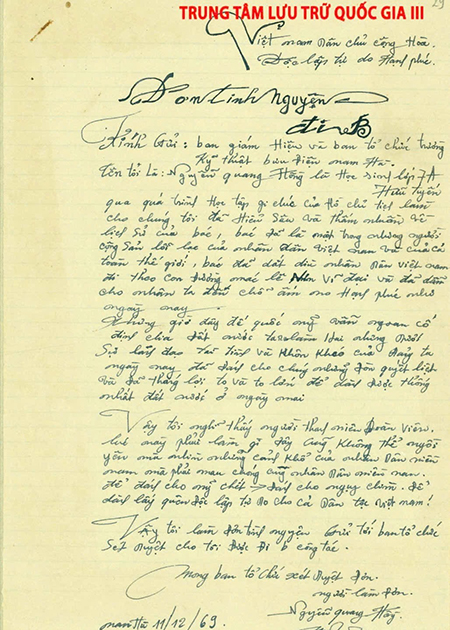 TRUNG TÂM LƯU TRỮ QUỐC GIA III
29
Việt nam Dân chủ cộng Hòa.
Độc lập tự do Hạnh phúc.
Đơn tình nguyện
đi B
Kính gửi: ban giám Hiệu và ban tổ chức trường
Kỹ thuật bưu điện nam Hà.
Tên tôi là: Nguyễn quang Hồng là Học sinh lớp 7A
Hữu tuyến
qua quá trình Học tập di chúc của Hồ chủ tịch làm
cho chúng tôi đã Hiểu sâu và thấm nhuần về
lịch sử của bác, bác đã là một trong những người
cộng sản lỗi lạc của nhân dân Việt nam và của cả
toàn thế giới, bác đã dắt dìu nhân dân Việt nam
đi theo con đường mác lê Nin vĩ đại và đã dẫn
cho nhân ta đến chỗ ấm no Hạnh phúc như
ngày nay.
Nhưng giờ đây đế quốc mỹ vẫn ngoan cố
định chia đất nước ta làm Hai nhưng dưới
sự lãnh đạo tài tình và khôn khéo của Đảng ta
ngày nay, đã đánh cho chúng những đòn quyết liệt
và đã thắng lợi to và to lớn để dành được thống
nhất đất nước ở ngày mai
Vậy tôi nghĩ thấy người thanh niên Đoàn viên.
lúc này phải làm gì đây cũng không thể ngồi
yên mà nhìn những cảnh khổ của nhân Dân miền
nam mà phải mau chóng cùng nhân Dân miền nam.
để đánh cho mỹ chết đánh cho ngụy chìm. Để
dành lấy quyền độc lập tự do cho cả Dân tộc Việt nam!
Vậy tôi làm đơn tình nguyện gửi tới ban tổ chức
xét duyệt cho tôi được đi b công tác.
mong ban tổ chức xét duyệt đơn.
người làm đơn.
Nguyễn quang Hồng
nam Hà 11/12/69.